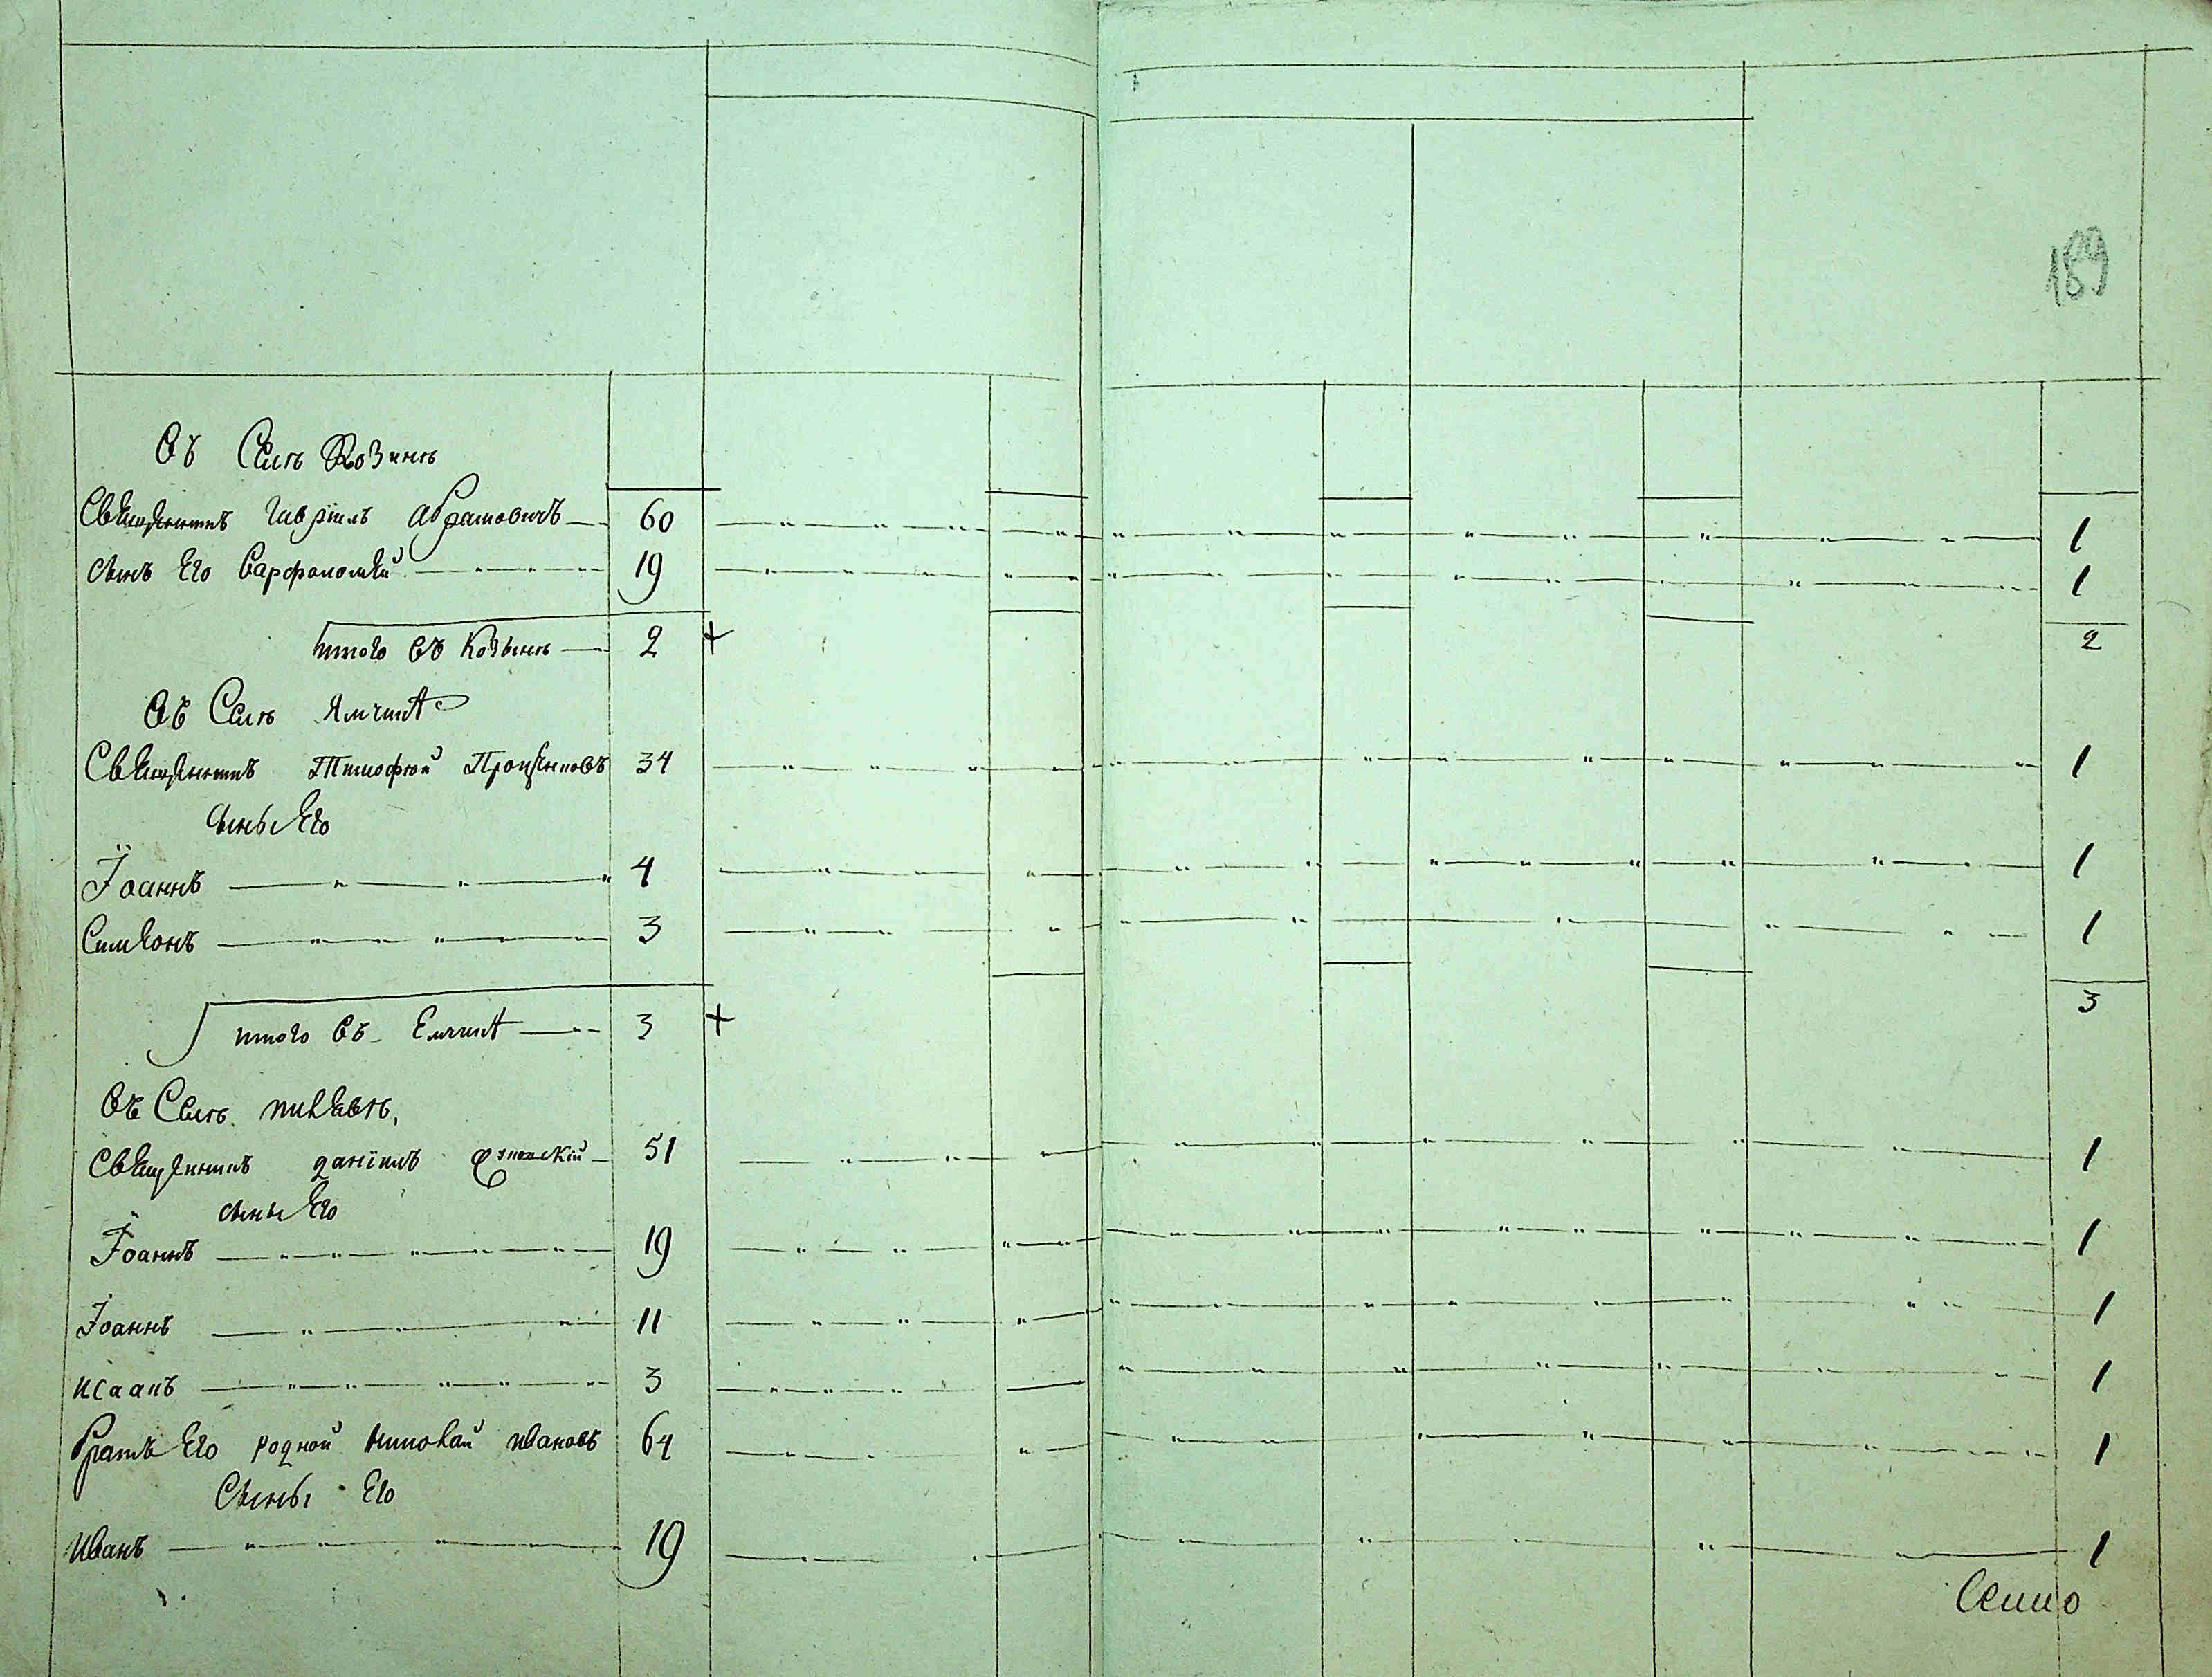 189
Въ Селѣ Козинѣ
Священникъ Гавріилъ Абрамовичъ 60 1
сынъ Его Варфоломей 19 1
итого въ Козынѣ 2 + 2
Въ Селѣ Ямчинѣ
Священникъ Тимофей Проценковъ 34 1
сыны Его
Іоаннъ 4 1
Симеонъ 3 1
итого въ Емчинѣ 3 + 3
Въ Селѣ пивцахъ,
Священникъ даніилъ 51 1
сыны Его
Іоаннъ 19 1
Іоаннъ 11 1
исаакъ 3 1
братъ Его родной николай ивановъ 64 1
Сыны Его
иванъ 19 1